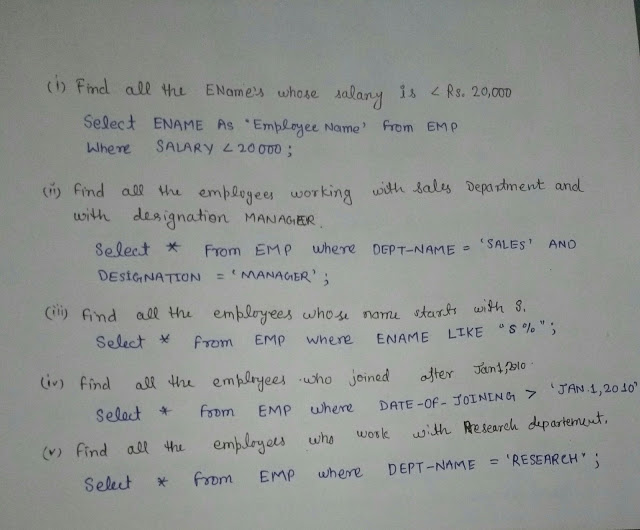 (i) Find all the EName's whose salary is < Rs. 20,000
Select ENAME As "Employee Name' from EMP
Where SALARY < 20000;
(ii) Find all the employees working with Sales Department and
with designation MANAGER.
Select * From EMP where DEPT-NAME = 'SALES' AND
DESIGNATION = 'MANAGER';
(iii) Find all the employees whose name starts with S.
Select * from EMP where ENAME LIKE "S%";
(iv) Find all the employees who joined after Jan1,2010.
Select * from EMP where DATE-OF-JOINING > 'JAN.1,2010'
(v) Find all the employees who work with Research departement.
Select * from EMP where DEPT-NAME = 'RESEARCH';